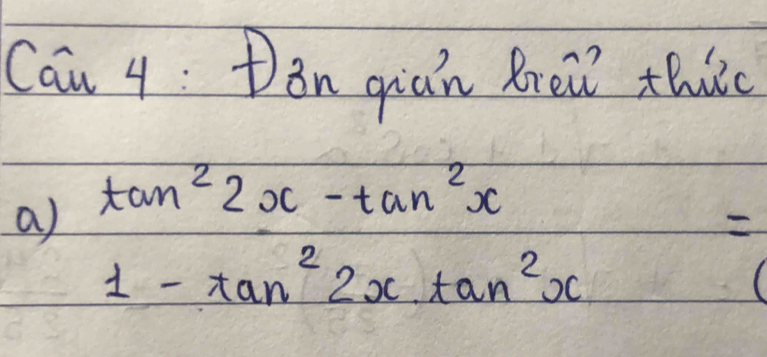 Câu 4 : Đơn giản biểu thức
a) tan²2x - tan²x =
1 - tan²2x.tan²x (